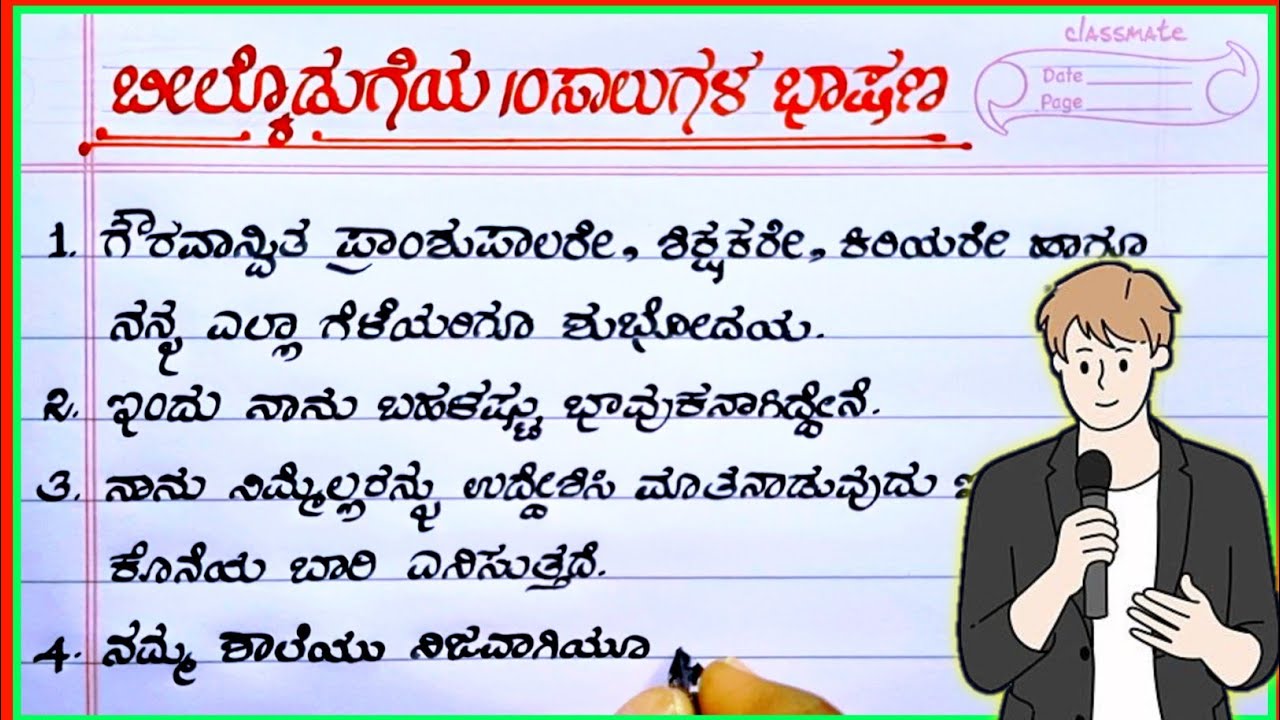 classmate
Date
Page
ಬೀಲ್ಕೊಡುಗೆಯ 10ಸಾಲುಗಳ ಭಾಷಣ
1. ಗೌರವಾನ್ವಿತ ಪ್ರಾಂಶುಪಾಲರೇ, ಶಿಕ್ಷಕರೇ, ಕಿರಿಯರೇ ಹಾಗೂ
ನನ್ನ ಎಲ್ಲಾ ಗೆಳೆಯರಿಗೂ ಶುಭೋದಯ.
2. ಇಂದು ನಾನು ಬಹಳಷ್ಟು ಭಾವುಕನಾಗಿದ್ದೇನೆ.
3. ನಾನು ನಿಮ್ಮೆಲ್ಲರನ್ನು ಉದ್ದೇಶಿಸಿ ಮಾತನಾಡುವುದು
ಕೊನೆಯ ಬಾರಿ ಎನಿಸುತ್ತದೆ.
4. ನಮ್ಮ ಶಾಲೆಯು ನಿಜವಾಗಿಯೂ